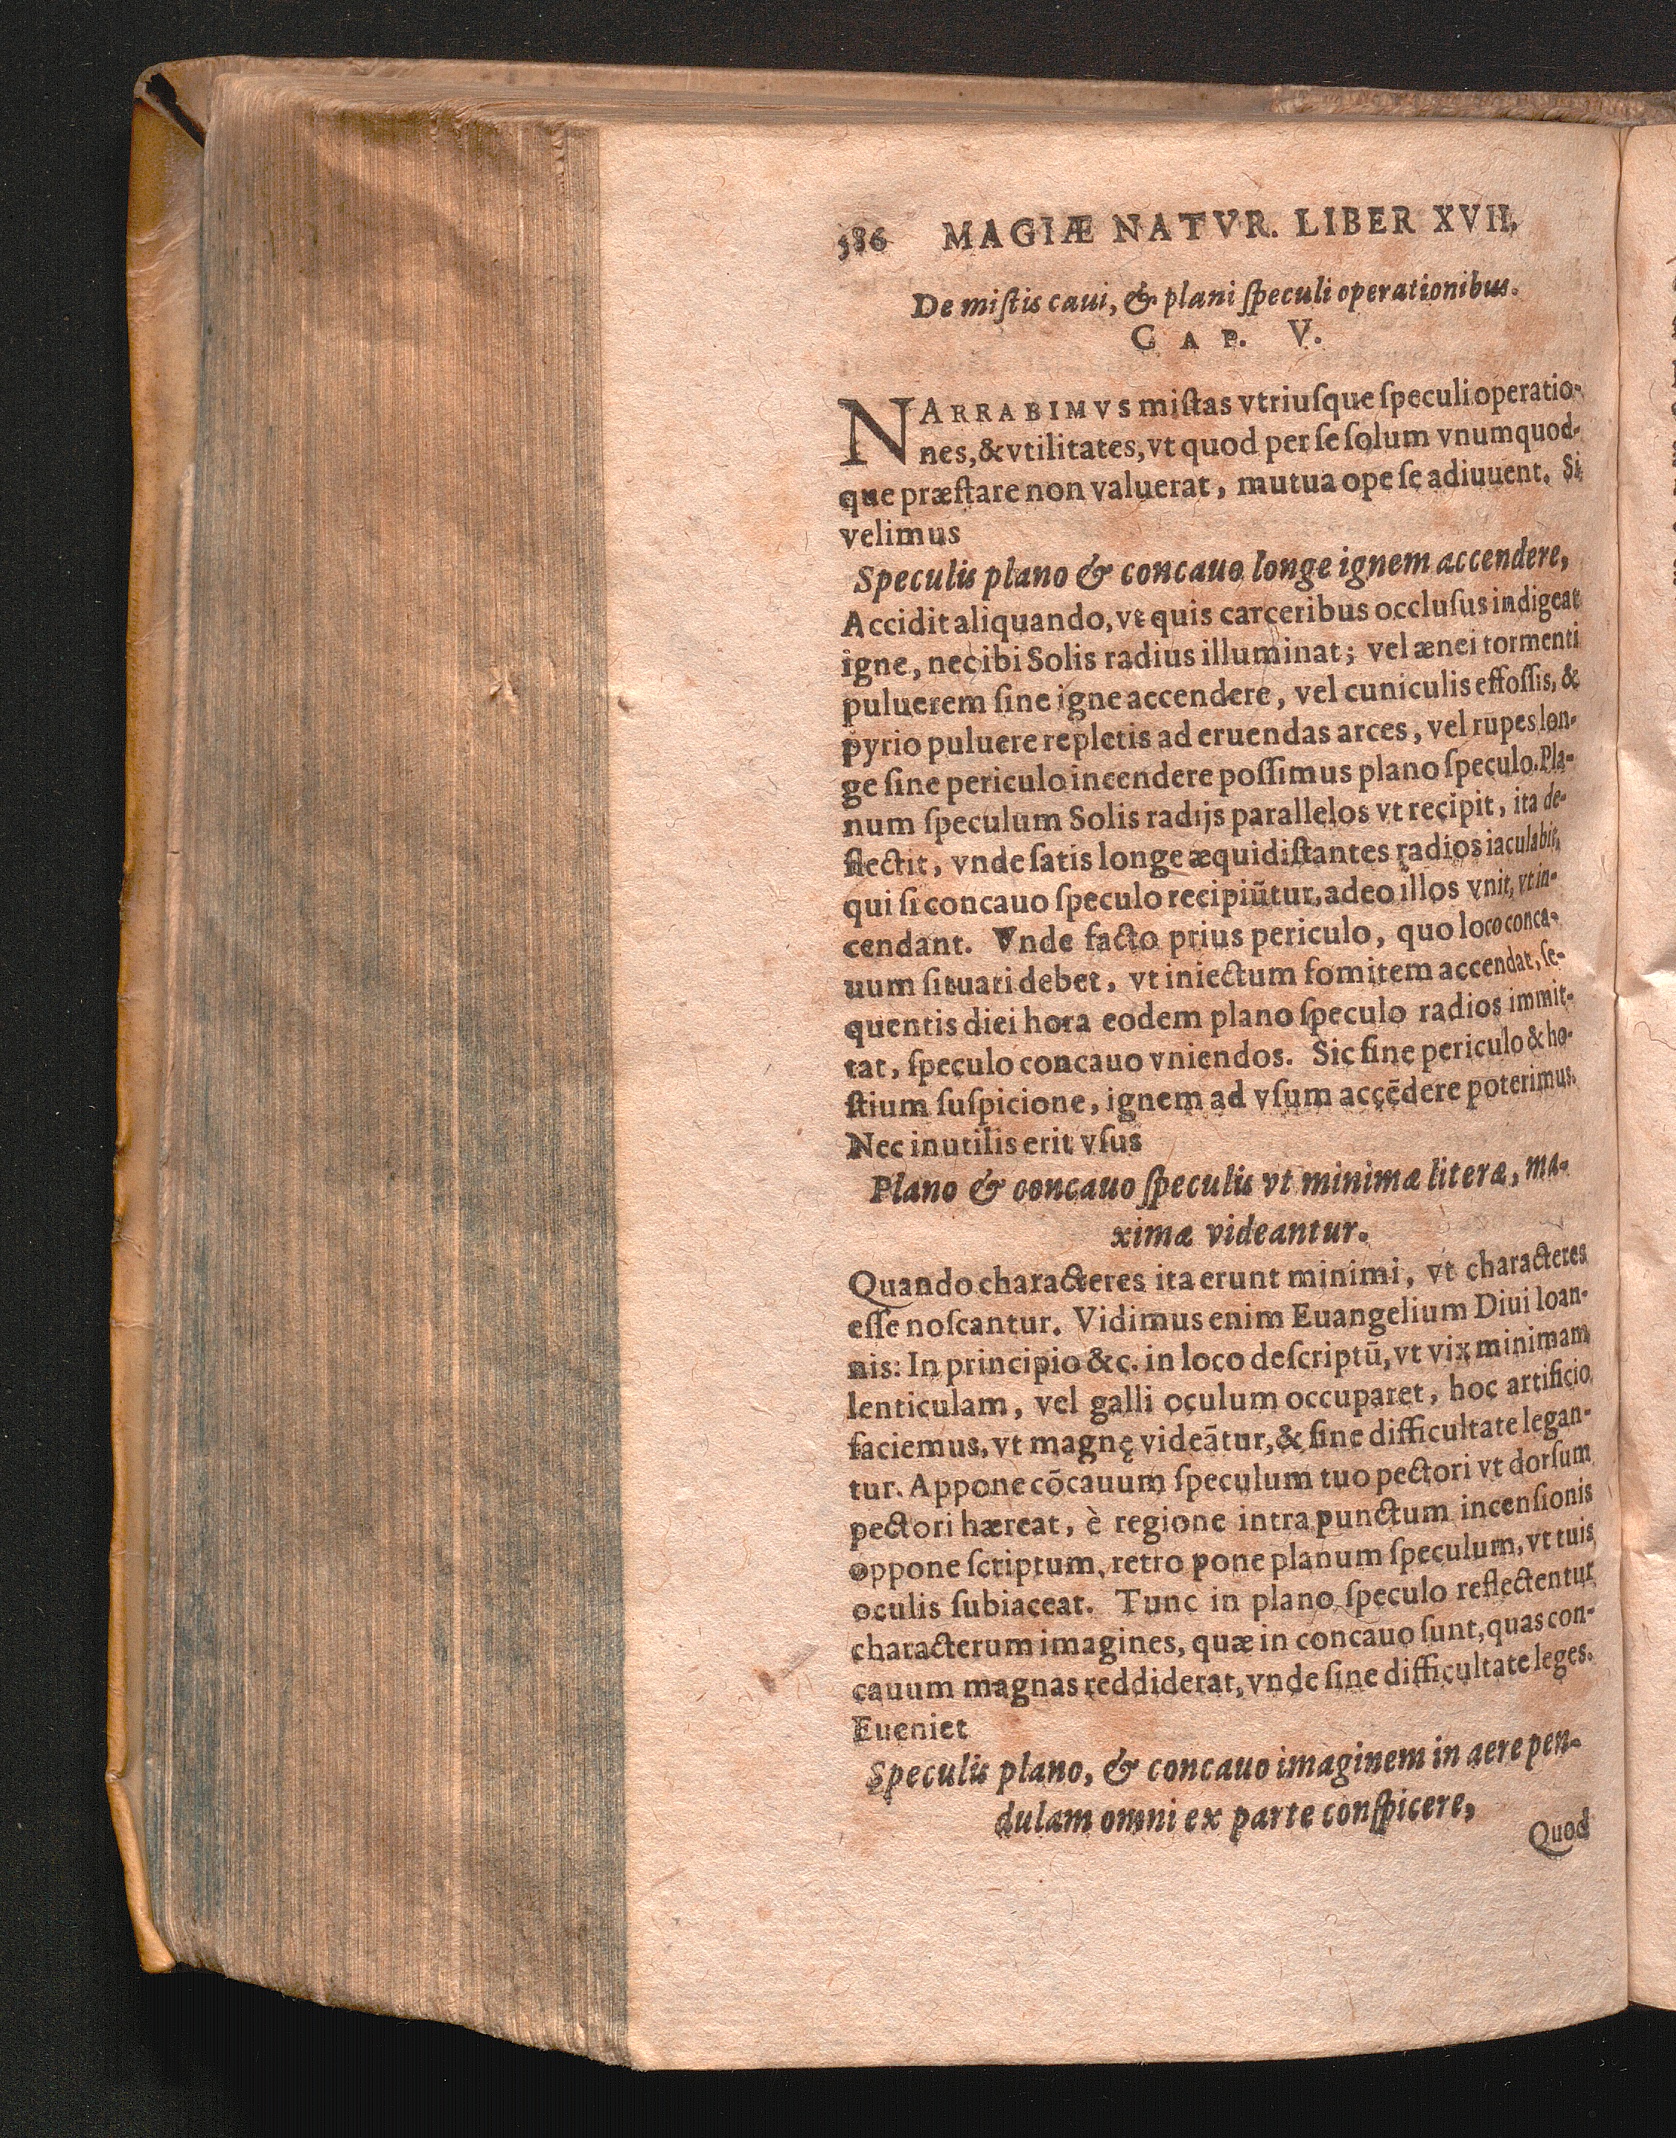 586 MAGIÆ NATVR. LIBER XVII.
De miſtis caui, & plani ſpeculi operationibus.
CAP. V.
NARRABIMVS miſtas vtriuſque ſpeculi operatio-
nes, & vtilitates, vt quod per ſe ſolum vnumquod-
que præſtare non valuerat, mutua ope ſe adiuuent. Si
velimus
Speculis plano & concauo longe ignem accendere,
Accidit aliquando, vt quis carceribus occluſus indigeat
igne, nec ibi Solis radius illuminat; vel ænei tormenti
puluerem ſine igne accendere, vel cuniculis effoſſis, &
pyrio puluere repletis ad eruendas arces, vel rupes lon-
ge ſine periculo incendere poſſimus plano ſpeculo. Pla-
num ſpeculum Solis radijs parallelos vt recipit, ita de-
flectit, vnde ſatis longe æquidiſtantes radios iaculabit,
qui ſi concauo ſpeculo recipiũtur, adeo illos vnit, vt in-
cendant. Vnde facto prius periculo, quo loco conca-
uum ſituari debet, vt iniectum fomitem accendat, ſe-
quentis diei hora eodem plano ſpeculo radios immit-
tat, ſpeculo concauo vniendos. Sic ſine periculo & ho-
ſtium ſuſpicione, ignem ad vſum accẽdere poterimus.
Nec inutilis erit vſus
Plano & concauo ſpeculis vt minimæ literæ, ma-
ximæ videantur.
Quando characteres ita erunt minimi, vt characteres
eſſe noſcantur. Vidimus enim Euangelium Diui Ioan-
nis: In principio &c. in loco deſcriptũ, vt vix minimam
lenticulam, vel galli oculum occuparet, hoc artificio
faciemus, vt magnę videãtur, & ſine difficultate legan-
tur. Appone cõcauum ſpeculum tuo pectori vt dorſum
pectori hæreat, è regione intra punctum incenſionis
oppone ſcriptum, retro pone planum ſpeculum, vt tuis
oculis ſubiaceat. Tunc in plano ſpeculo reflectentur
characterum imagines, quæ in concauo ſunt, quas con-
cauum magnas reddiderat, vnde ſine difficultate leges.
Eueniet
Speculis plano, & concauo imaginem in aere pen-
dulam omni ex parte conſpicere,
Quod